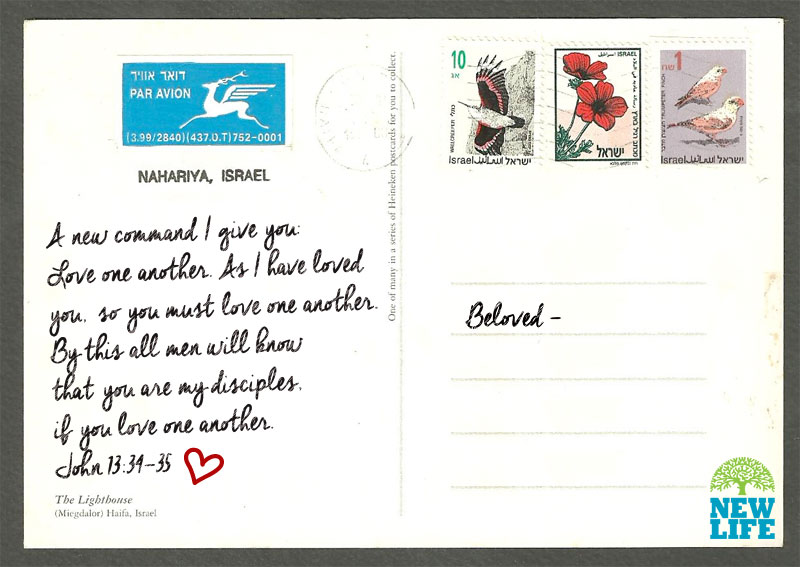 דואר אוויר
PAR AVION
(3.99/2840)(437.D.T)752-0001
NAHARIYA, ISRAEL
A new command I give you:
Love one another. As I have loved
you, so you must love one another.
By this all men will know
that you are my disciples,
if you love one another.
John 13:34-35
The Lighthouse
(Miegdalor) Haifa, Israel
One of many in a series of Heineken postcards for you to collect.
10
אג
WALLCREEPER
כותלי
Israel اسرائيل ישראל
ISRAEL اسرائيل
ישראל
1
שח
TRUMPETER FINCH
Israel اسرائيل ישראל
Beloved -
NEW
LIFE